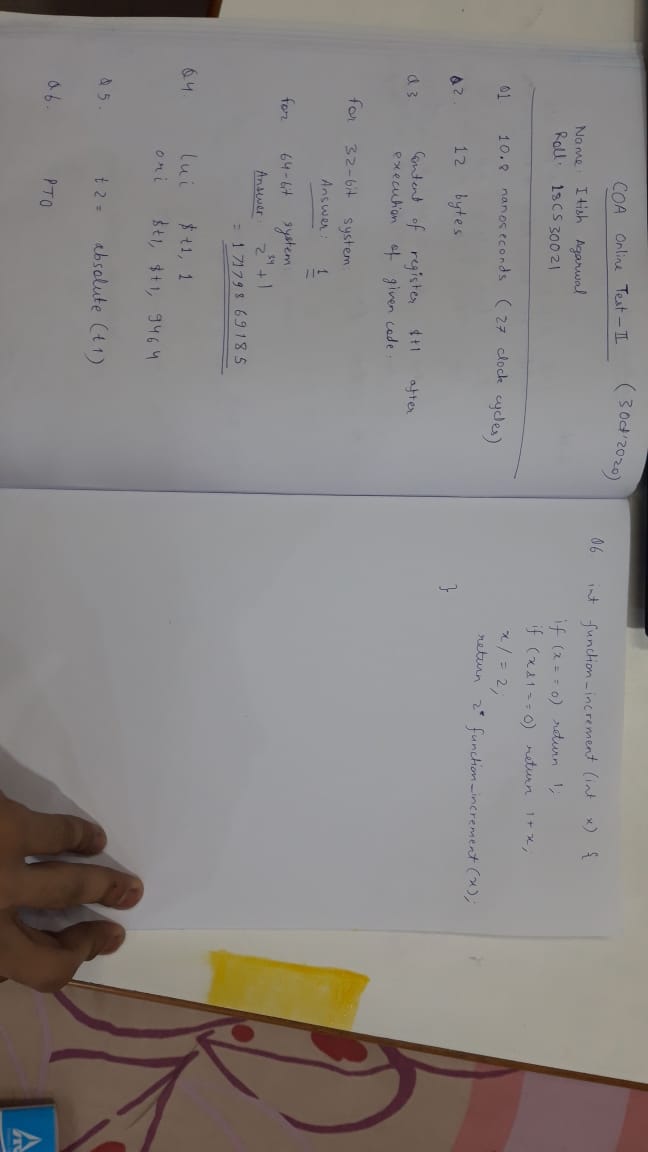 COA Online Test-II (3 Oct'2020)
Name: Itish Agarwal
Roll: 18CS30021
Q1 10.8 nanoseconds (27 clock cycles)
Q2. 12 bytes
Q3 Content of register $t1 after
execution of given code.
for 32-bit system
Answer: 1
for 64-bit system
Answer: 2^34 + 1
= 17179869185
Q4. lui $t1, 1
ori $t1, $t1, 9464
Q5. t2 = absolute (t1)
Q6. PTO
Q6 int function_increment (int x) {
if (x == 0) return 1;
if (x&1 == 0) return 1+x;
x/=2;
return 2* function_increment (x);
}